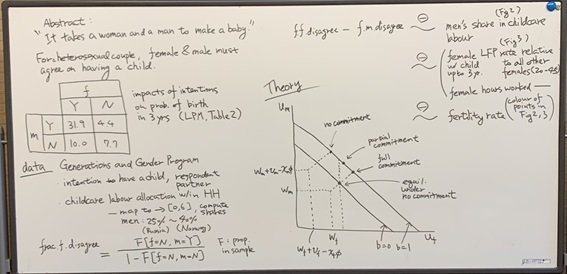 Abstract:
"It takes a woman and a man to make a baby."
For heterosexual couple, female & male must
agree on having a child.
f
Y N
m Y 31.9 4.4
N 10.0 7.7
impacts of intentions
on prob. of birth
in 3 yrs (LPM, Table 2)
data Generations and Gender Program
intention to have a child, respondent
partner
childcare labour allocation w/in HH
– map to → [0,6], compute
shares
men: 25% ~ 40%
(Russia) (Norway)
frac f. disagree = F[f=N, m=Y]
1 – F[f=N, m=N]
F: prop.
in sample
ff disagree – f.m disagree ~ men's share in childcare
labour
(Fig 2)
–
~ female LFP rate relative
(Fig 3)
w/ child to all other
up to 3 yr. females
female hours worked
–
~ fertility rate (colour of
points in
Fig 2, 3)
Theory
Um
no commitment
partial
commitment
full
commitment
equil.
under
no commitment
Wm
Wf
b=0 b=1 Uf